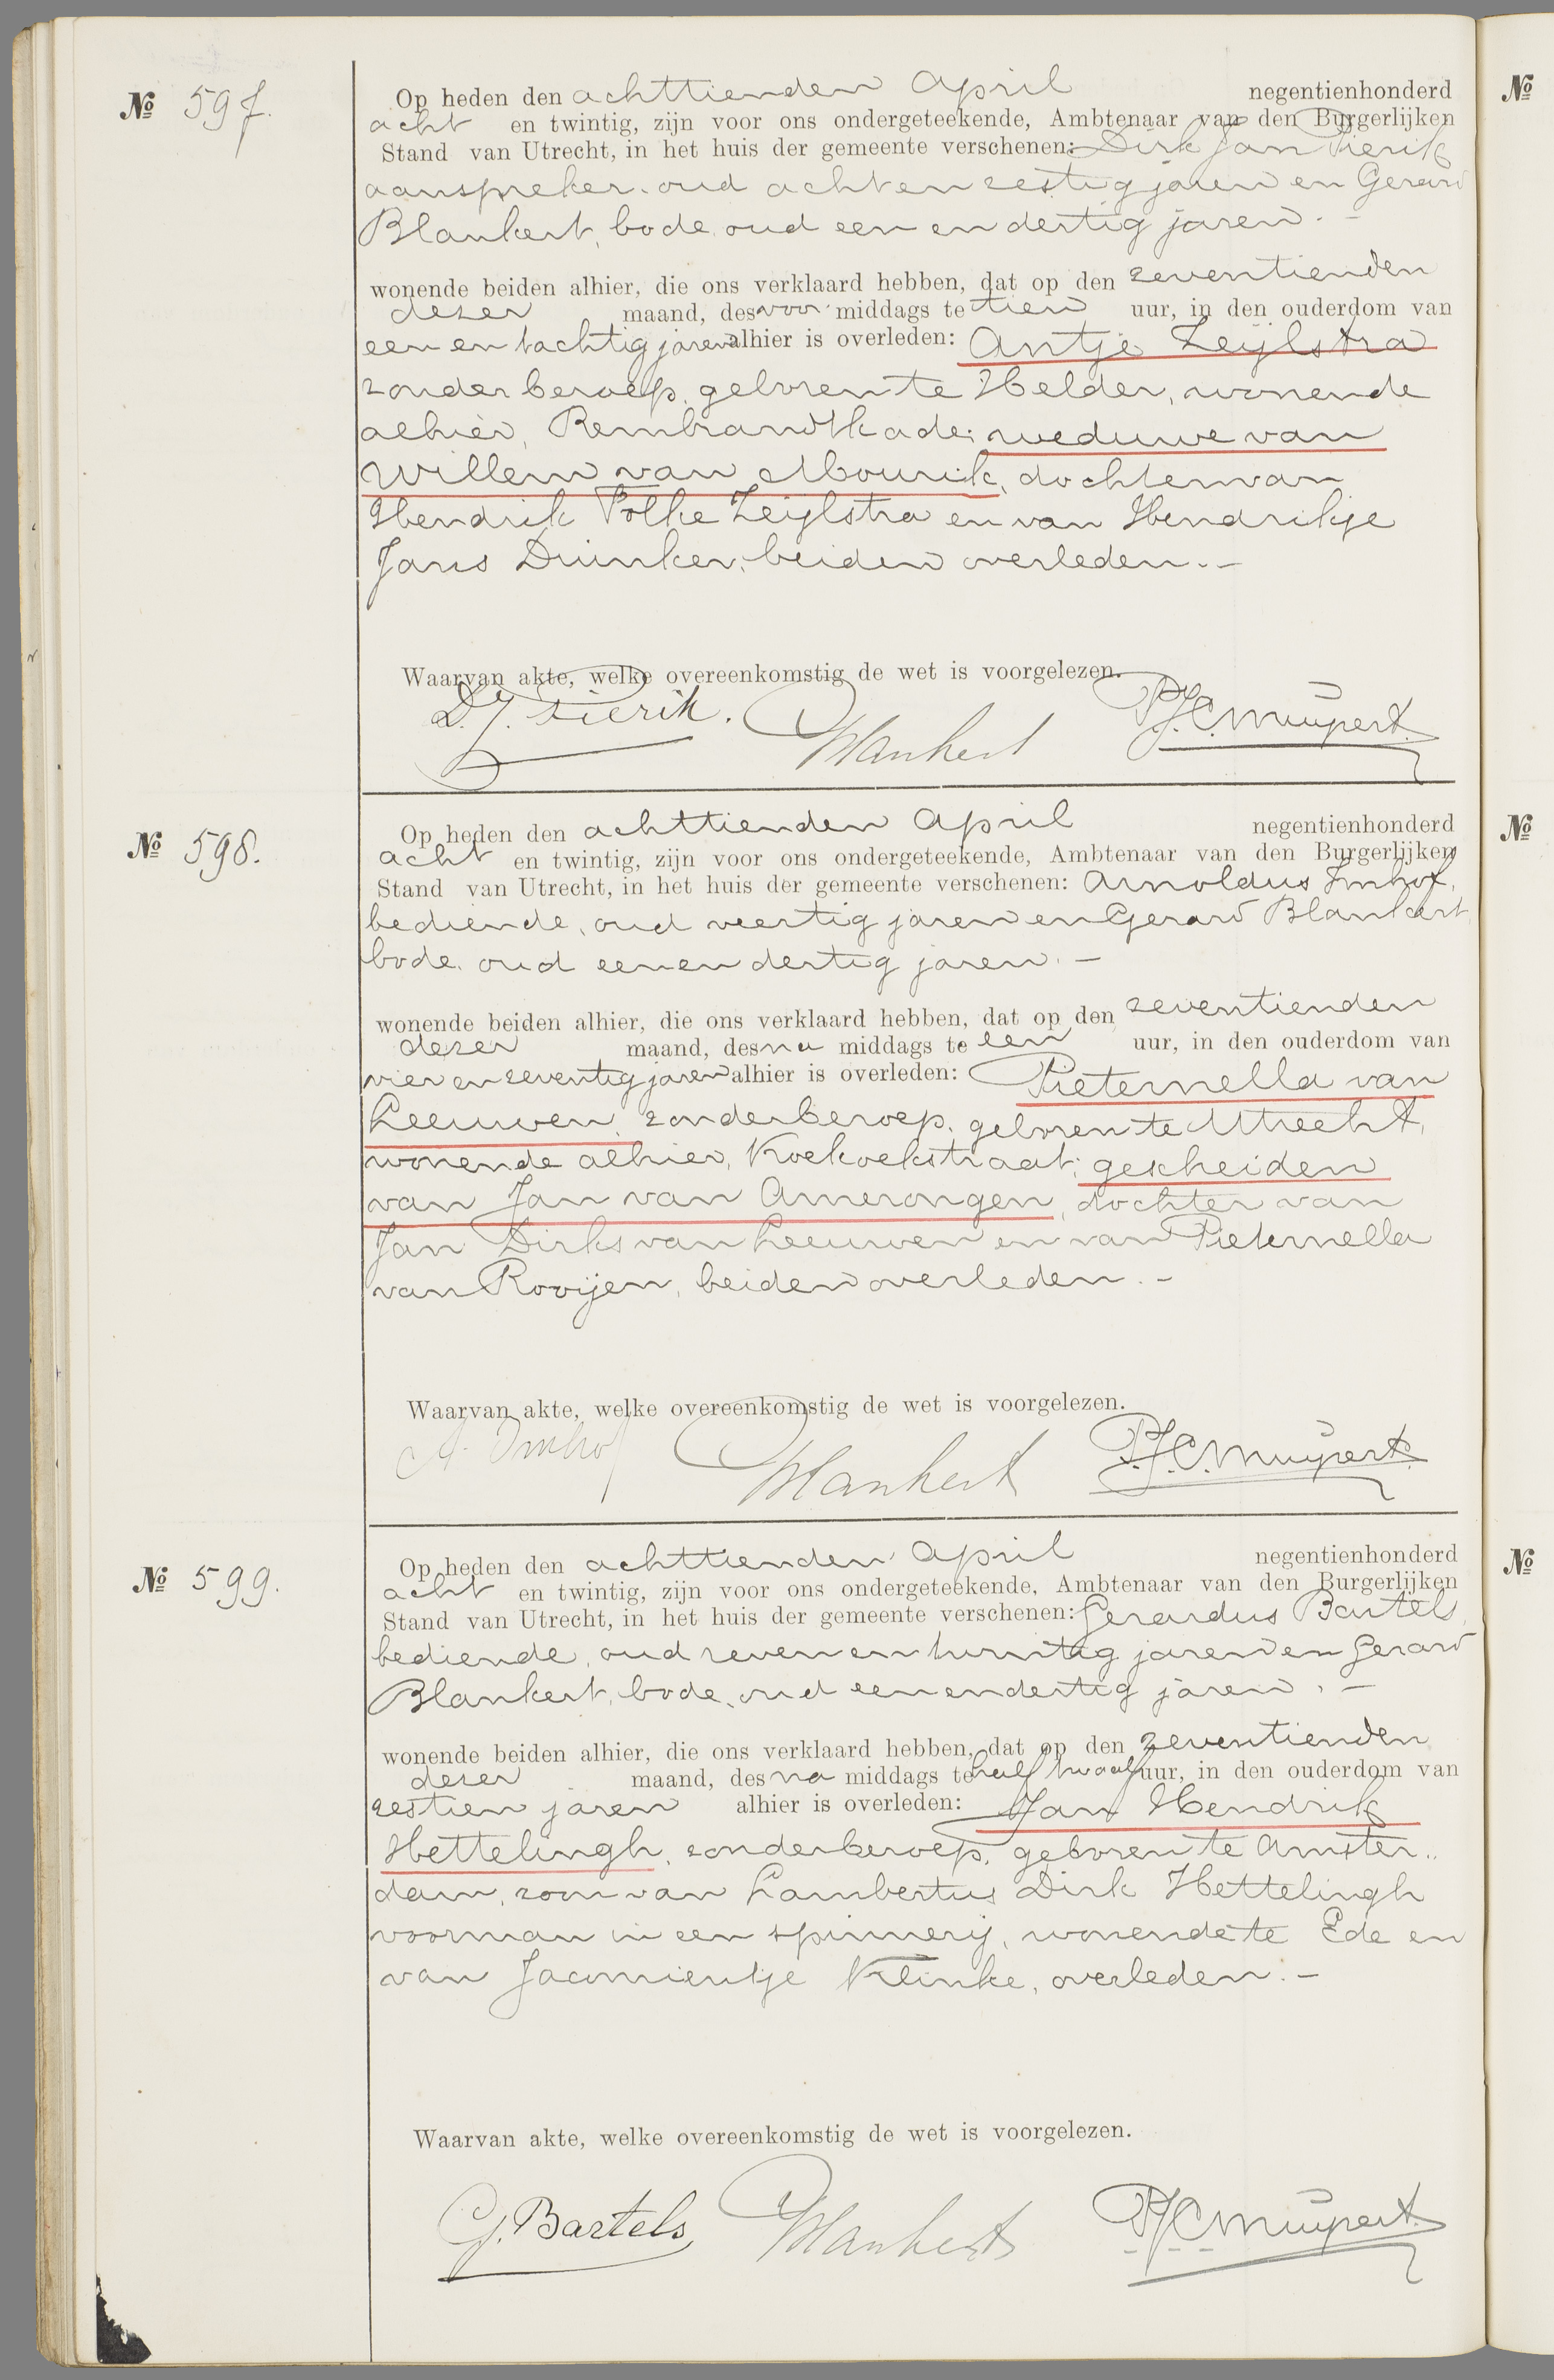 № 597.
Op heden den achttienden April negentienhonderd
acht en twintig, zijn voor ons ondergeteekende, Ambtenaar van den Burgerlijken
Stand van Utrecht, in het huis der gemeente verschenen: Dirk Jan Pierik
aanspreker, oud acht en zestig jaren en Gerard
Blankert, bode, oud een en dertig jaren. –
wonende beiden alhier, die ons verklaard hebben, dat op den zeventienden
dezer maand, des voormiddags te tien uur, in den ouderdom van
een en tachtig jaren alhier is overleden: Antje Zeijlstra
zonder beroep, geboren te Helder, wonende
alhier, Rembrandtkade; weduwe van
Willem van Mourik, dochter van
Hendrik Folke Zeijlstra en van Hendrikje
Jans Duinker, beiden overleden. –
Waarvan akte, welke overeenkomstig de wet is voorgelezen.
D.J. Pierik. Blankert P.J.C. Muypert.
№ 598.
Op heden den achttienden April negentienhonderd
acht en twintig, zijn voor ons ondergeteekende, Ambtenaar van den Burgerlijken
Stand van Utrecht, in het huis der gemeente verschenen: Arnoldus Imhof,
bediende, oud veertig jaren en Gerard Blankert
bode, oud een en dertig jaren. –
wonende beiden alhier, die ons verklaard hebben, dat op den zeventienden
dezer maand, des na middags te een uur, in den ouderdom van
vier en zeventig jaren alhier is overleden: Pieternella van
Leeuwen, zonder beroep, geboren te Utrecht,
wonende alhier, Koekoekstraat; gescheiden
van Jan van Amerongen, dochter van
Jan Dirks van Leeuwen en van Pieternella
van Rooijen, beiden overleden. –
Waarvan akte, welke overeenkomstig de wet is voorgelezen.
A. Imhof Blankert P.J.C. Muypert.
№ 599.
Op heden den achttienden April negentienhonderd
acht en twintig, zijn voor ons ondergeteekende, Ambtenaar van den Burgerlijken
Stand van Utrecht, in het huis der gemeente verschenen: Gerardus Bartels,
bediende, oud zeven en twintig jaren en Gerard
Blankert, bode, oud een en dertig jaren. –
wonende beiden alhier, die ons verklaard hebben, dat op den zeventienden
dezer maand, des na middags te half twaalf uur, in den ouderdom van
zestien jaren alhier is overleden: Jan Hendrik
Hettelingh, zonder beroep, geboren te Amster„
dam, zoon van Lambertus Dirk Hettelingh
voorman in een spinnerij, wonende te Ede en
van Jacomientje Klinke, overleden. –
Waarvan akte, welke overeenkomstig de wet is voorgelezen.
G. Bartels Blankert P.J.C. Muypert.
№
№
№